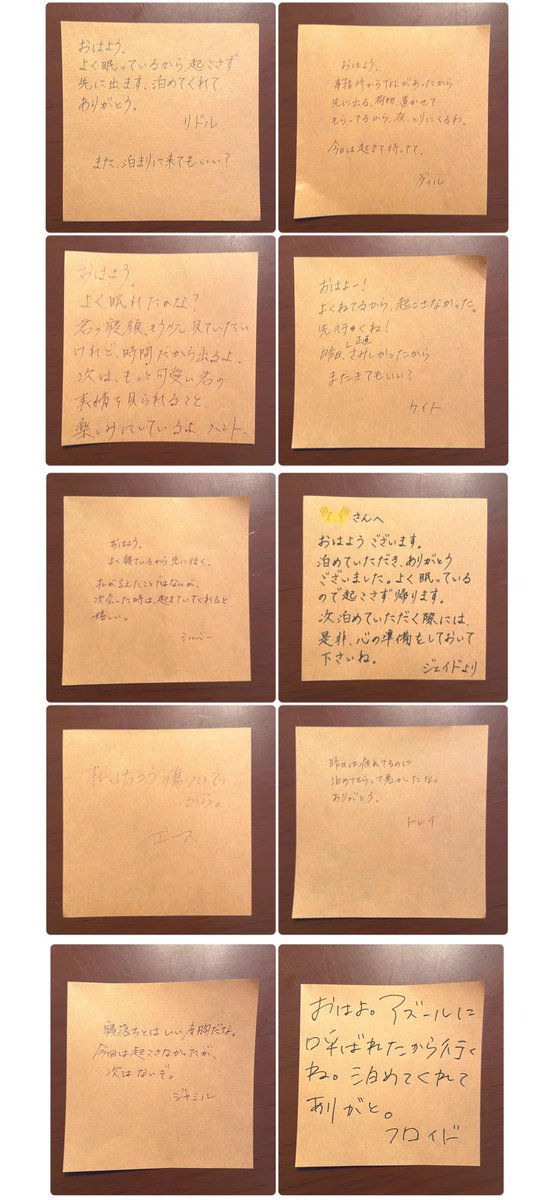 おはよう。
よく眠っているから、起こさず
先に出ます。泊めてくれて
ありがとう。
リドル
また、泊まりに来てもいい?
おはよう。
事務所からTELがあったから
先に出る。荷物、置かせて
もらってるから、夜、とりにくるわ。
今日は起きて待ってて。
ヴィル
おはよう。
よく眠れたかな?
君の寝顔、もう少し見ていたい
けれど、時間だから出るよ。
次は、もっと可愛い君の
表情を見られること、
楽しみにしているよ ルーク.
おはよー!
よくねてるから、起こさなかった。
先行くね!
昨日、正直さみしかったから
またきてもいい?
ケイト
おはよう。
よく寝ているから先に行く。
オレが言えたことではないが、
次会った時は、起きていてくれると
嬉しい。
シルバー
さんへ
おはようございます。
泊めていただき、ありがとう
ございました。よく眠っている
ので起こさず帰ります。
次泊めていただく際には、
是非、心の準備をしておいて
下さいね。
ジェイドより
オレ、けっこう傷ついてっ
から。
エース
昨日は疲れてるのに
泊めてもらって悪かったな。
ありがとう。
トレイ
寝落ちとはいい度胸だな。
今回は起こさなかったが、
次はないぞ。
ジャミル
おはよ。アズールに
呼ばれたから行く
ね。泊めてくれて
ありがと。
フロイド